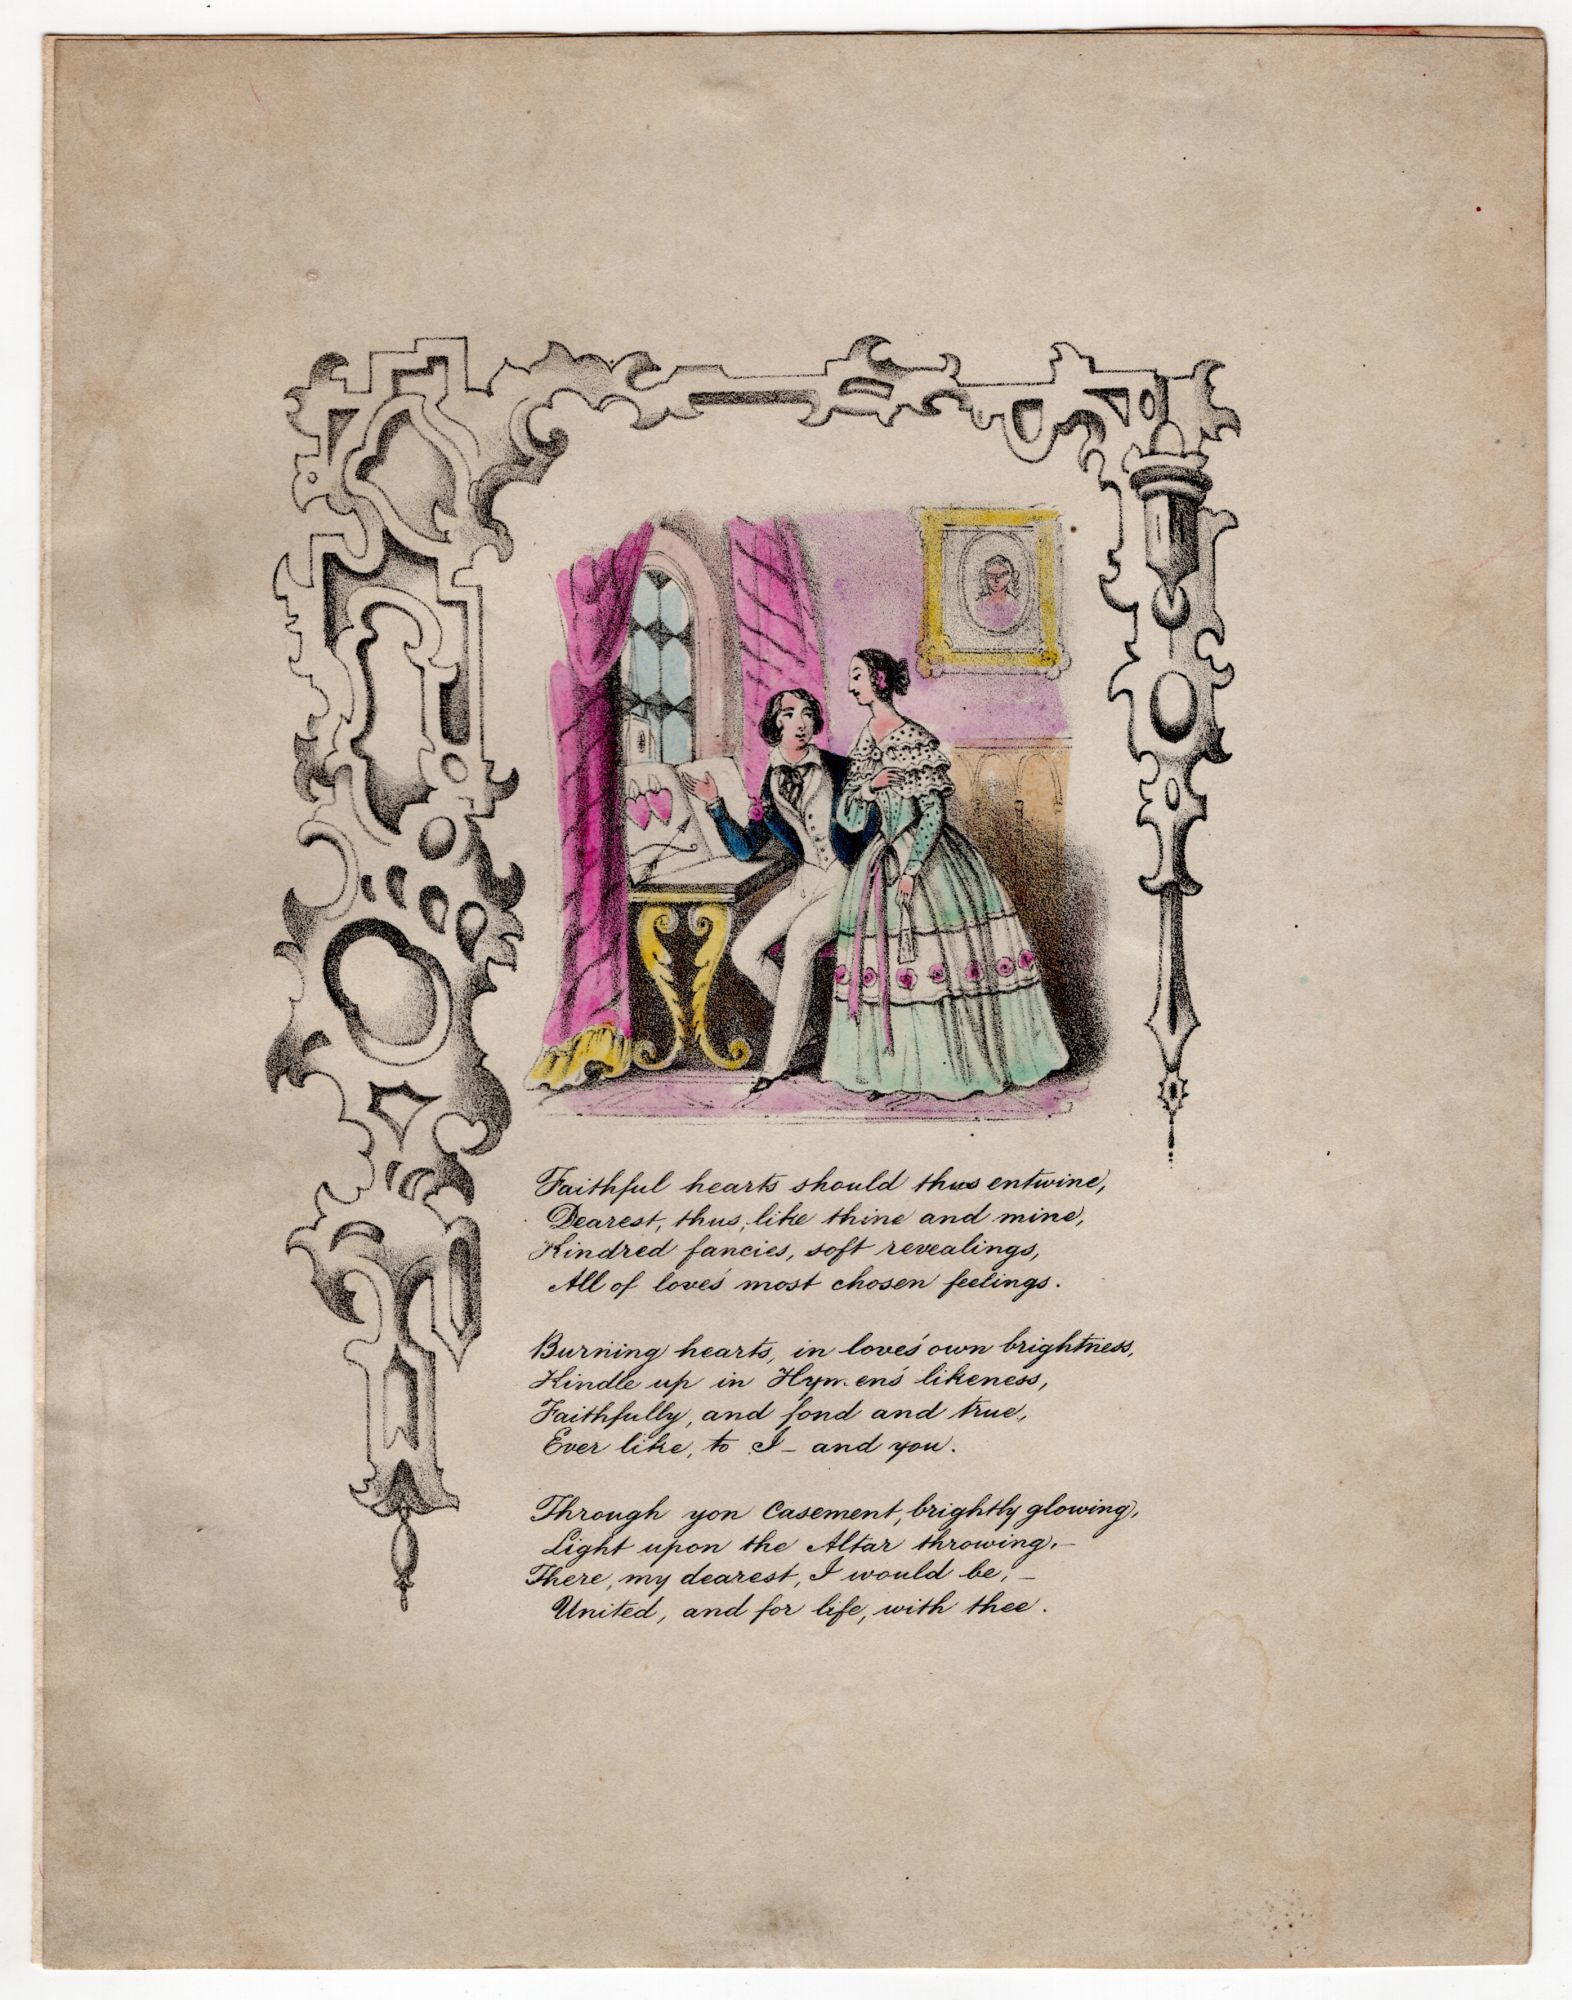 Faithful hearts should thus entwine,
Dearest, thus, like thine and mine,
Kindred fancies, soft revealings,
All of love's most chosen feelings.
Burning hearts, in love's own brightness,
Kindle up in Hymen's likeness,
Faithfully, and fond and true,
Ever like, to I_ and you.
Through yon Casement, brightly glowing,
Light upon the Altar throwing,_
There, my dearest, I would be,_
United, and for life, with thee.